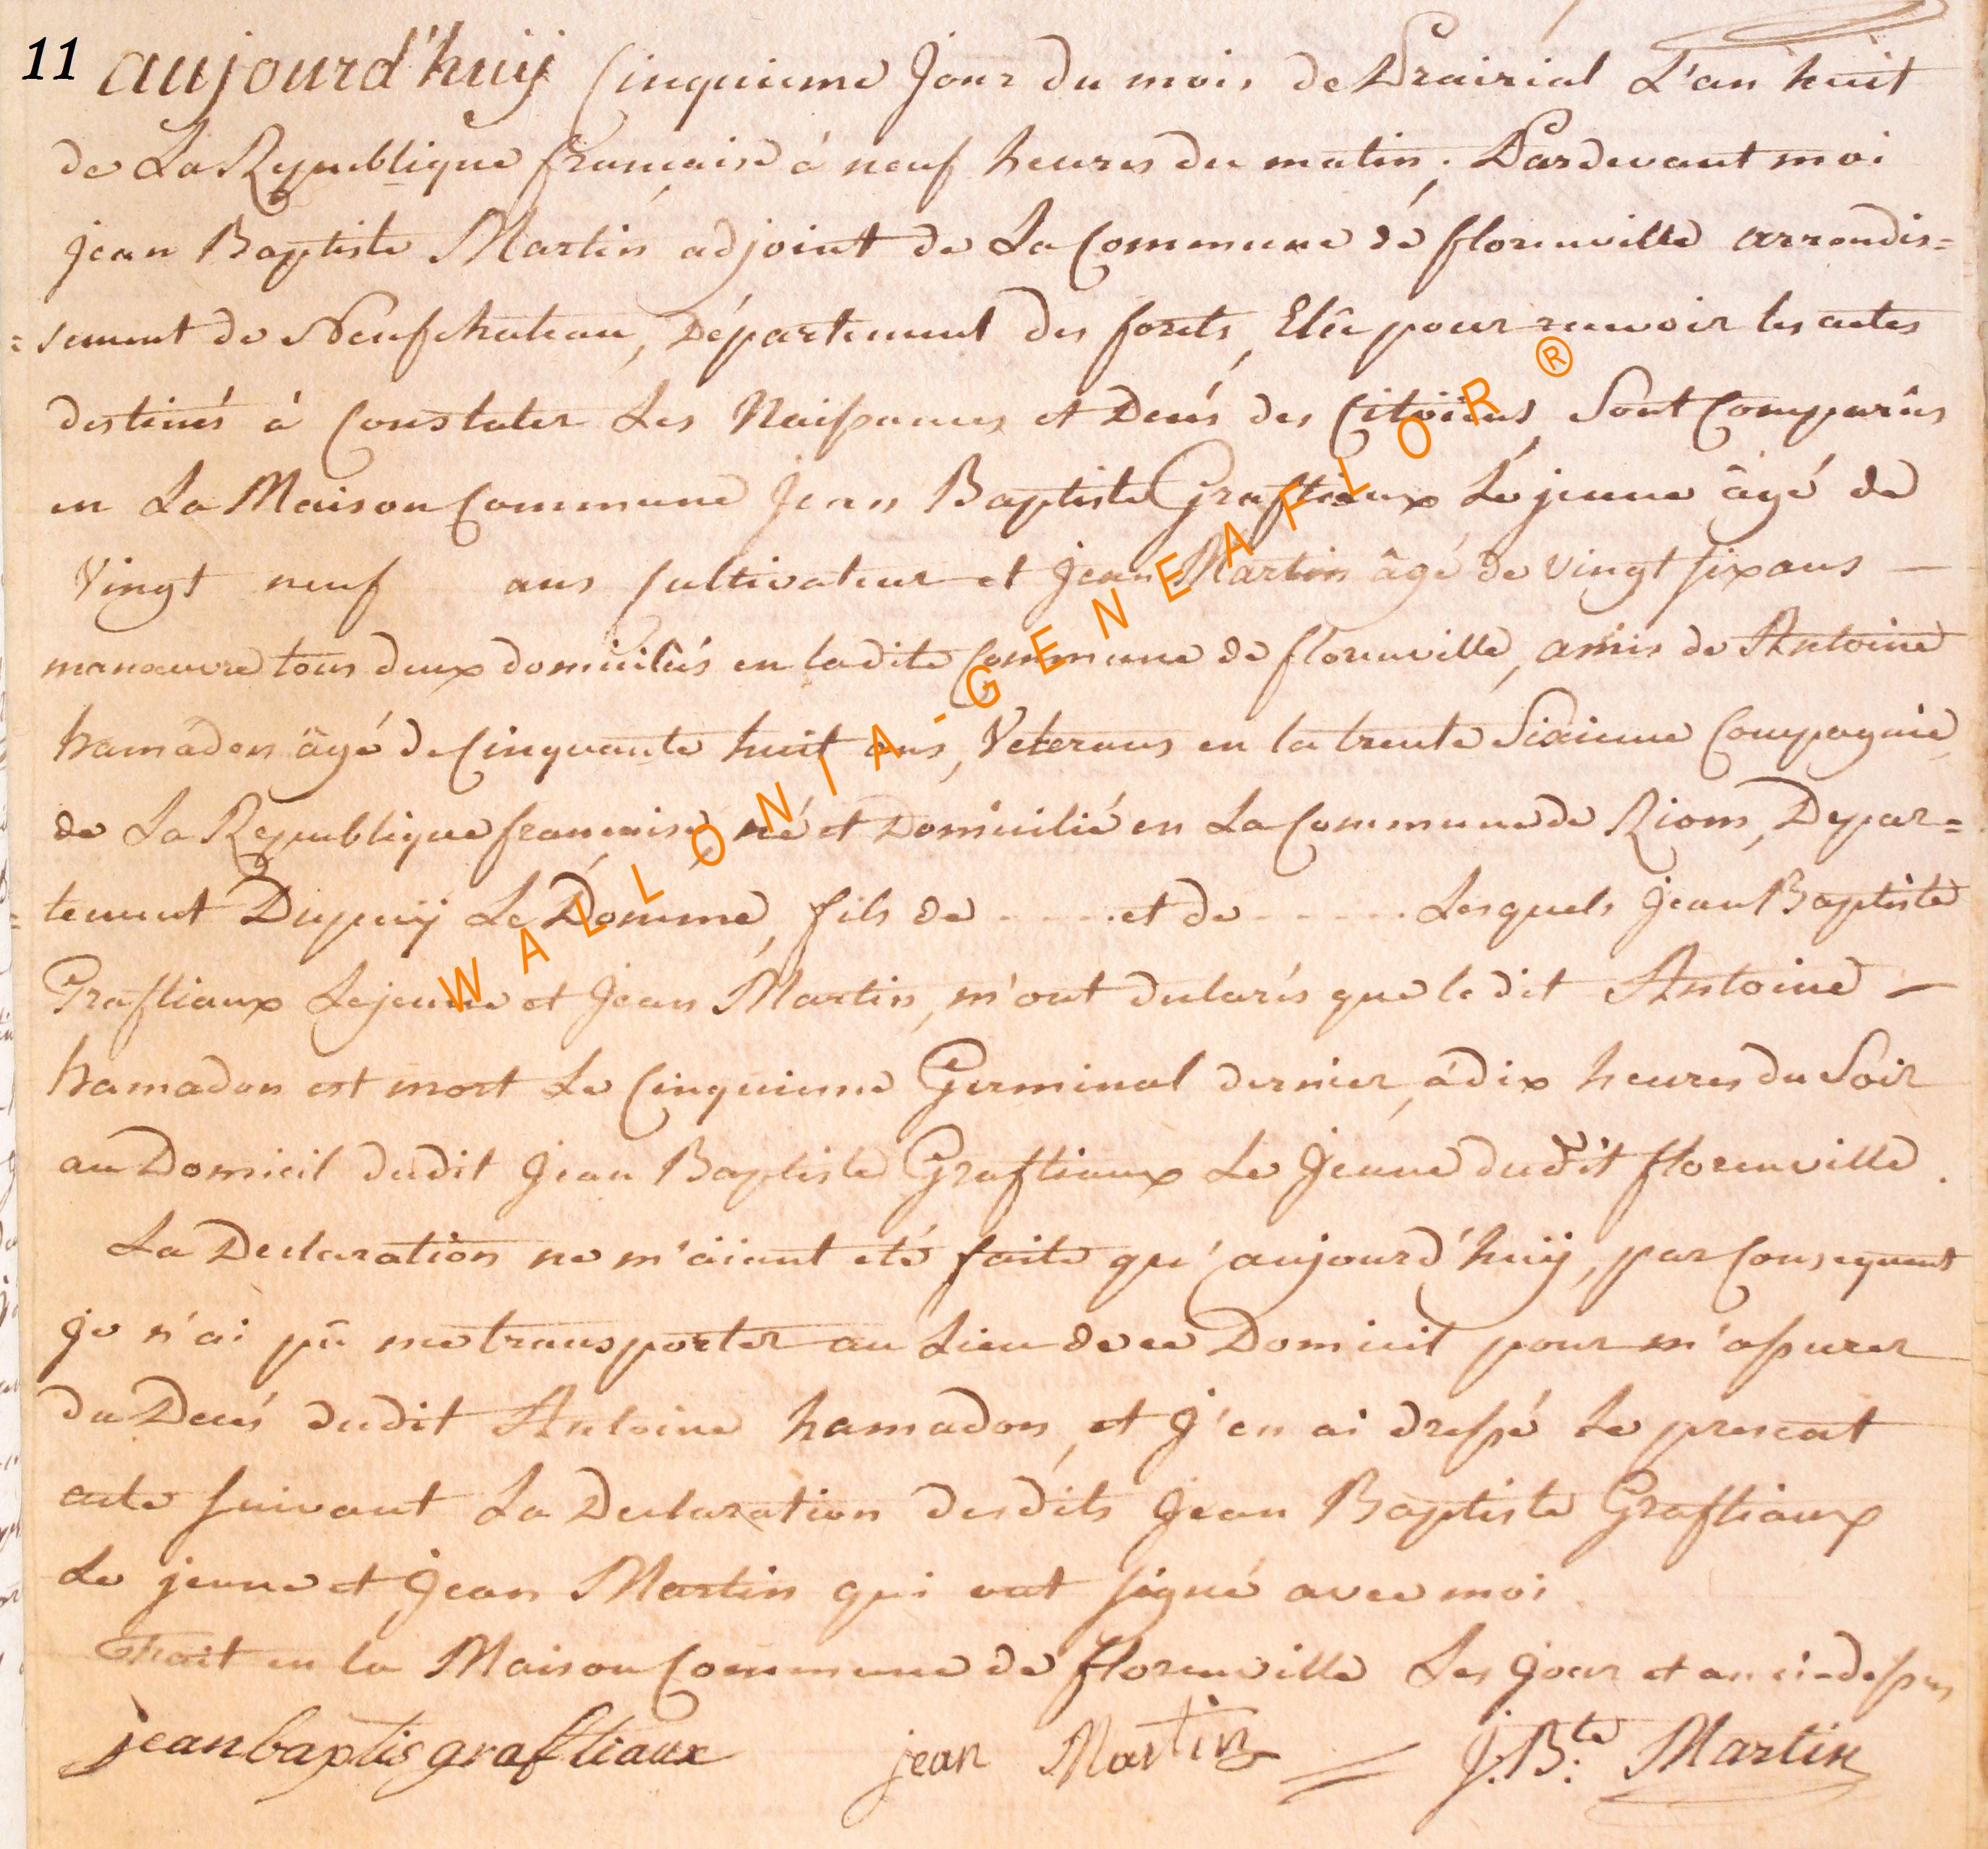 11 aujourd'huÿ Cinquieme Jour du mois de Prairial L'an huit
de La Republique française à neuf heures du matin; Pardevant moi
Jean Baptiste Martin adjoint de La Commune de florenville arrondis=
=sement de Neufchateau, Département des forets, Elû pour recevoir les actes
destinés à Constater Les Naissances et Decés des Citoiens, Sont Comparûs
en La Maison Commune Jean Baptiste Graftiaux Le jeune âgé de
Vingt neuf ans Cultivateur et Jean Martin âgé de vingt six ans —
manœuvre tous deux domiciliés en ladite Commune de florenville, amis de Antoine
hamadon âgé de Cinquante huit ans, Veterans en la trente Sixieme Compagnie
de La Republique française, né et Domicilié en La Commune de Riom, Depar=
=tement Dupuÿ Le Domme, fils de ...... et de ....... Lesquels Jean Baptiste
Graftiaux Lejeune et Jean Martin, m'ont declarés que le dit Antoine —
hamadon est mort Le Cinquieme Germinal dernier, à dix heures du Soir
au Domicil dudit Jean Baptiste Graftiaux Le Jeune dudit florenville.
La Declaration ne m'aiant eté faite qu'aujourd'huÿ, par Consequent
Je n'ai pû me transporter au Lieu de ce Domicil pour m'assurer
du Decés dudit Antoine hamadon, et J'en ai dressé Le present
acte suivant La Declaration desdits Jean Baptiste Graftiaux
Le jeune et Jean Martin qui ont signé avec moi
Fait en la Maison Commune de florenville Les Jour et an ci-dessus
jean baptis graftiaux jean Martin J. Bte: Martin
WALLONIA-GENEAFLOR ®